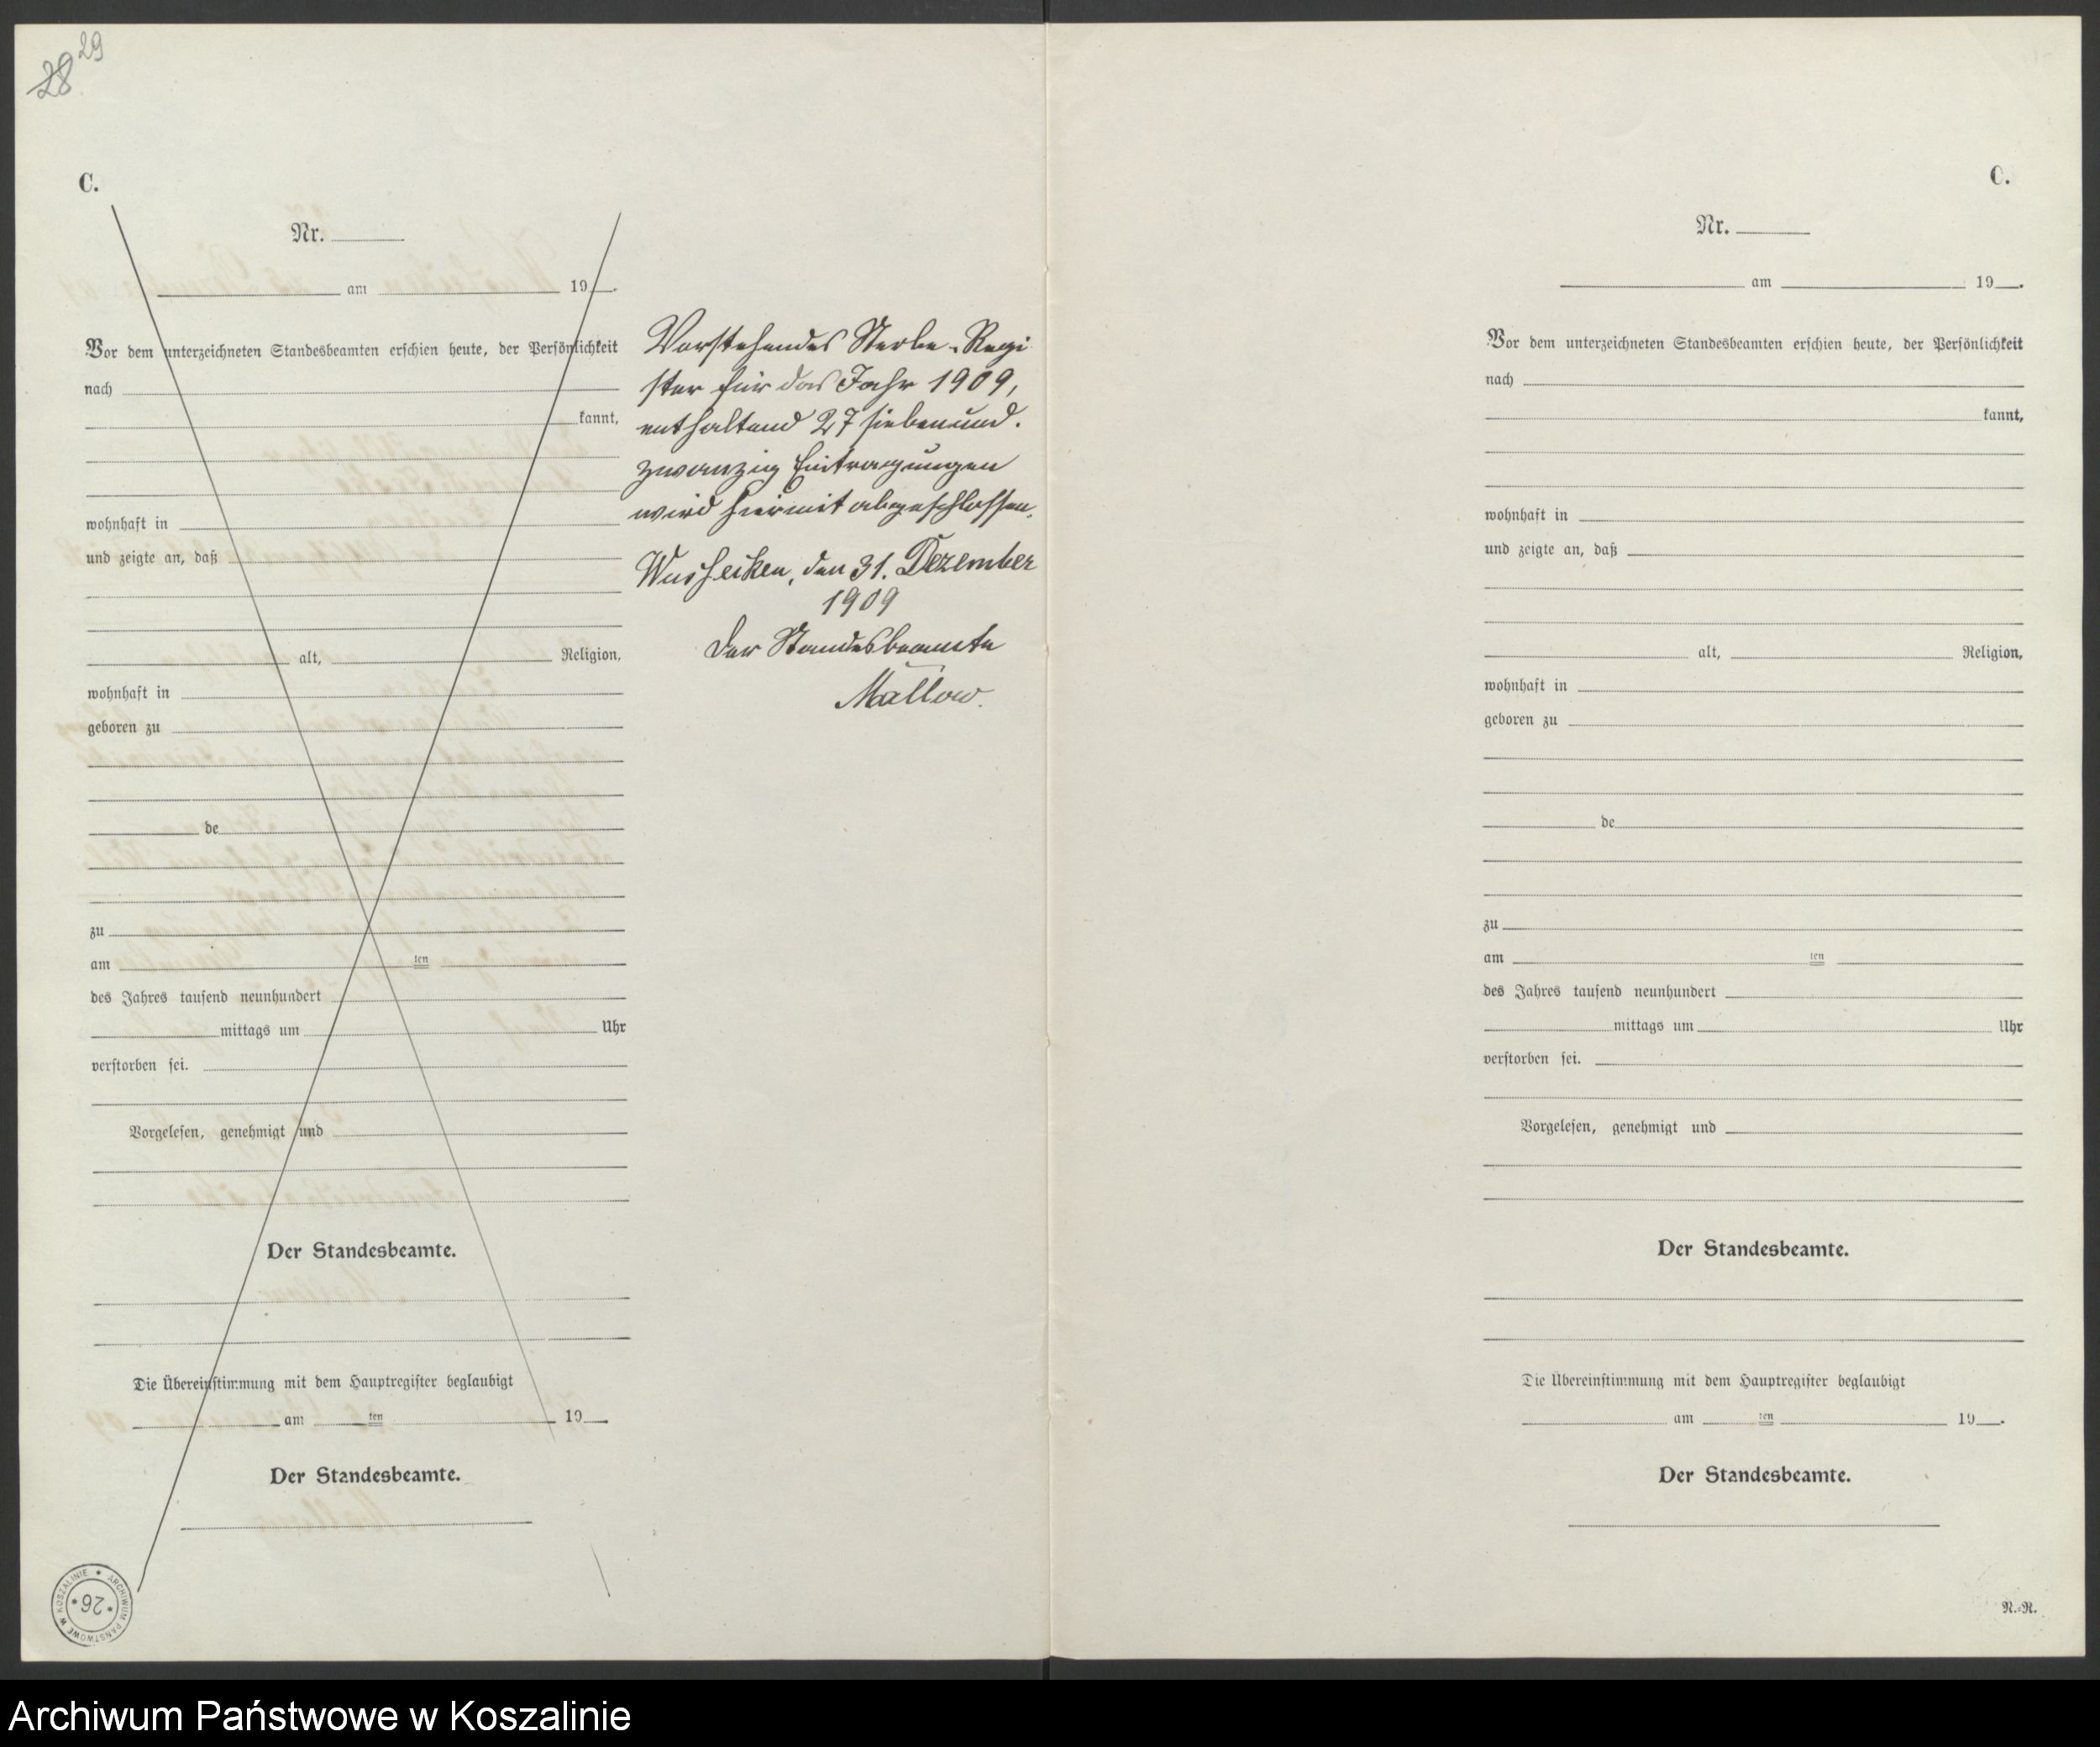 28 29
C.
Nr.
am 19 .
Vor dem unterzeichneten Standesbeamten erschien heute, der Persönlichkeit
nach
kannt,
wohnhaft in
und zeigte an, daß
alt, Religion,
wohnhaft in
geboren zu
de
zu
am ten
des Jahres tausend neunhundert
mittags um Uhr
verstorben sei.
Vorgelesen, genehmigt und
Der Standesbeamte.
Die Übereinstimmung mit dem Hauptregister beglaubigt
am ten 19 .
Der Standesbeamte.
ARCHIWUM PAŃSTWOWE W KOSZALINIE
* 26 *
Vorstehendes Sterbe-Regi
ster für das Jahr 1909,
enthaltend 27 siebenund-
zwanzig Eintragungen
wird hiermit abgeschlossen.
Wusseken, den 31. Dezember
1909
Der Standesbeamte
Mallow.
C.
Nr.
am 19 .
Vor dem unterzeichneten Standesbeamten erschien heute, der Persönlichkeit
nach
kannt,
wohnhaft in
und zeigte an, daß
alt, Religion,
wohnhaft in
geboren zu
de
zu
am ten
des Jahres tausend neunhundert
mittags um Uhr
verstorben sei.
Vorgelesen, genehmigt und
Der Standesbeamte.
Die Übereinstimmung mit dem Hauptregister beglaubigt
am ten 19 .
Der Standesbeamte.
N.-R.
Archiwum Państwowe w Koszalinie